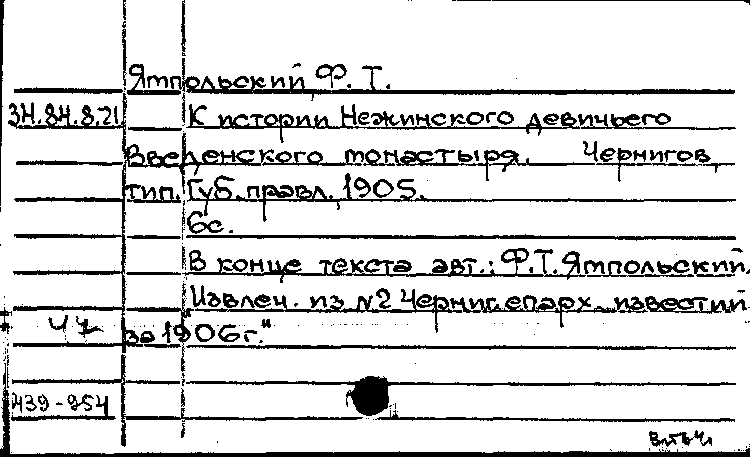 Ямпольский, Ф. Т.
34.84.8.21 К истории Нежинского девичьего
Введенского монастыря. Чернигов,
тип. Губ. правл., 1905.
6с.
В конце текста авт.: Ф.Т. Ямпольский.
"Извлеч. из №2 Черниг. епарх. известий
за 1906г."
439-954